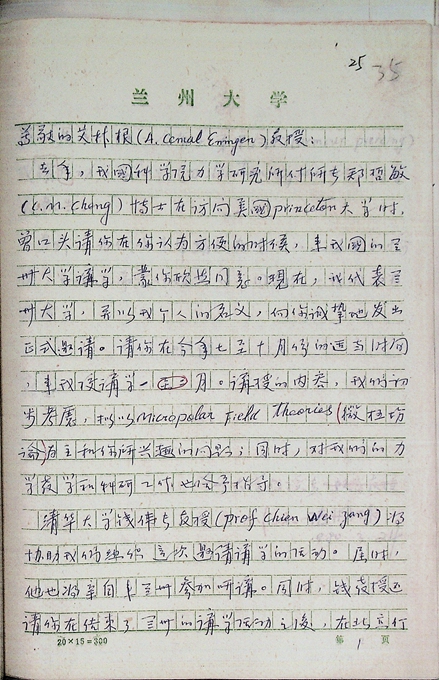 25 35
兰州大学
尊敬的艾林根(A. Cemal Eringen)教授:
去年,我國科学院力学研究所付所长郑哲敏
(C. M. Cheng)博士在访问美國princeton大学时,
曾口头请你在你认为方便的时候,来我國的兰
州大学講学,蒙你欣然同意。现在,我代表兰
州大学,并以我个人的名义,向你诚挚地发出
正式邀请。请你在今年七至十月份的适当时间
,来我校講学一 月。講授的内容,我们初
步考虑,拟以micropolar Field Theories(微极场
論)为主和你所兴趣的问题;同时,对我们的力
学教学和科研工作也给予指导。
清华大学钱伟长教授(prof Chien Wei Zang)将
协助我们组织这次邀请講学的活动。届时,
他也将亲自来兰州参加听講。同时,钱教授还
请你在结束了兰州的講学活动之後,在北京作
20×15=300 第 1 页